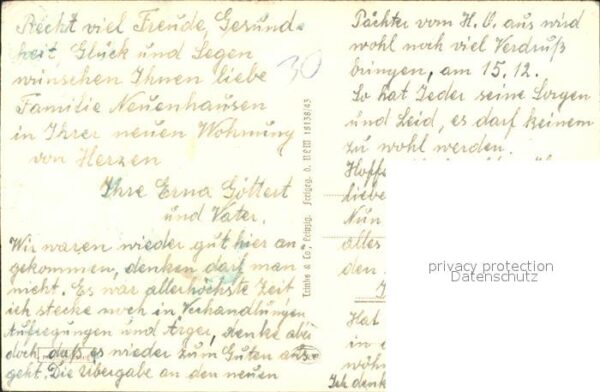 Recht viel Freude, Gesund-
heit, Glück und Segen
wünschen Ihnen liebe
Familie Neuenhausen
in Ihrer neuen Wohnung
von Herzen
Ihre Erna Göttert
und Vater.
Wir waren wieder gut hier an-
gekommen, denken darf man
nicht. Es war allerhöchste Zeit
ich stecke noch in Verhandlungen
Aufregungen und Ärger, denke aber
doch daß es wieder zum Guten aus-
geht. Die Übergabe an den neuen
30
Trinks & Co., Leipzig. Freigeg. d. MDN 18138/43
Pächter vom H.O. aus wird
wohl noch viel Verdruß
bringen, am 15.12.
So hat Jeder seine Sorgen
und Leid, es darf keinem
zu wohl werden.
Hoffe
liebe
Nun
alles
den
Hat
in
wöh
Ich denk
privacy protection
Datenschutz